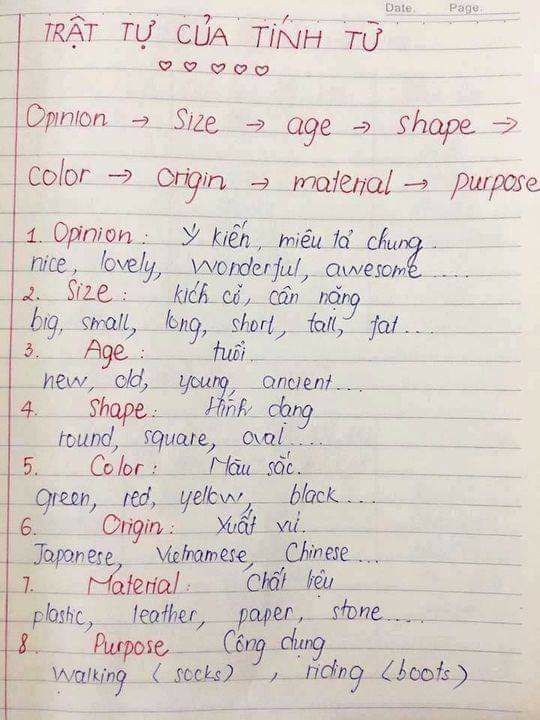 Date. Page.
TRẬT TỰ CỦA TÍNH TỪ
Opinion → Size → age → shape →
color → Origin → material → purpose
1. Opinion : Ý kiến, miêu tả chung.
nice, lovely, wonderful, awesome.....
2. Size : kích cỡ, cân nặng
big, small, long, short, tall, fat...
3. Age : tuổi.
new, old, young, ancient...
4. Shape : Hình dạng
round, square, oval.....
5. Color : Màu sắc.
Green, red, yellow, black...
6. Origin : Xuất xứ.
Japanese, Vietnamese, Chinese...
7. Material : Chất liệu
plastic, leather, paper, stone.....
8. Purpose Công dụng
walking (socks) , riding (boots)